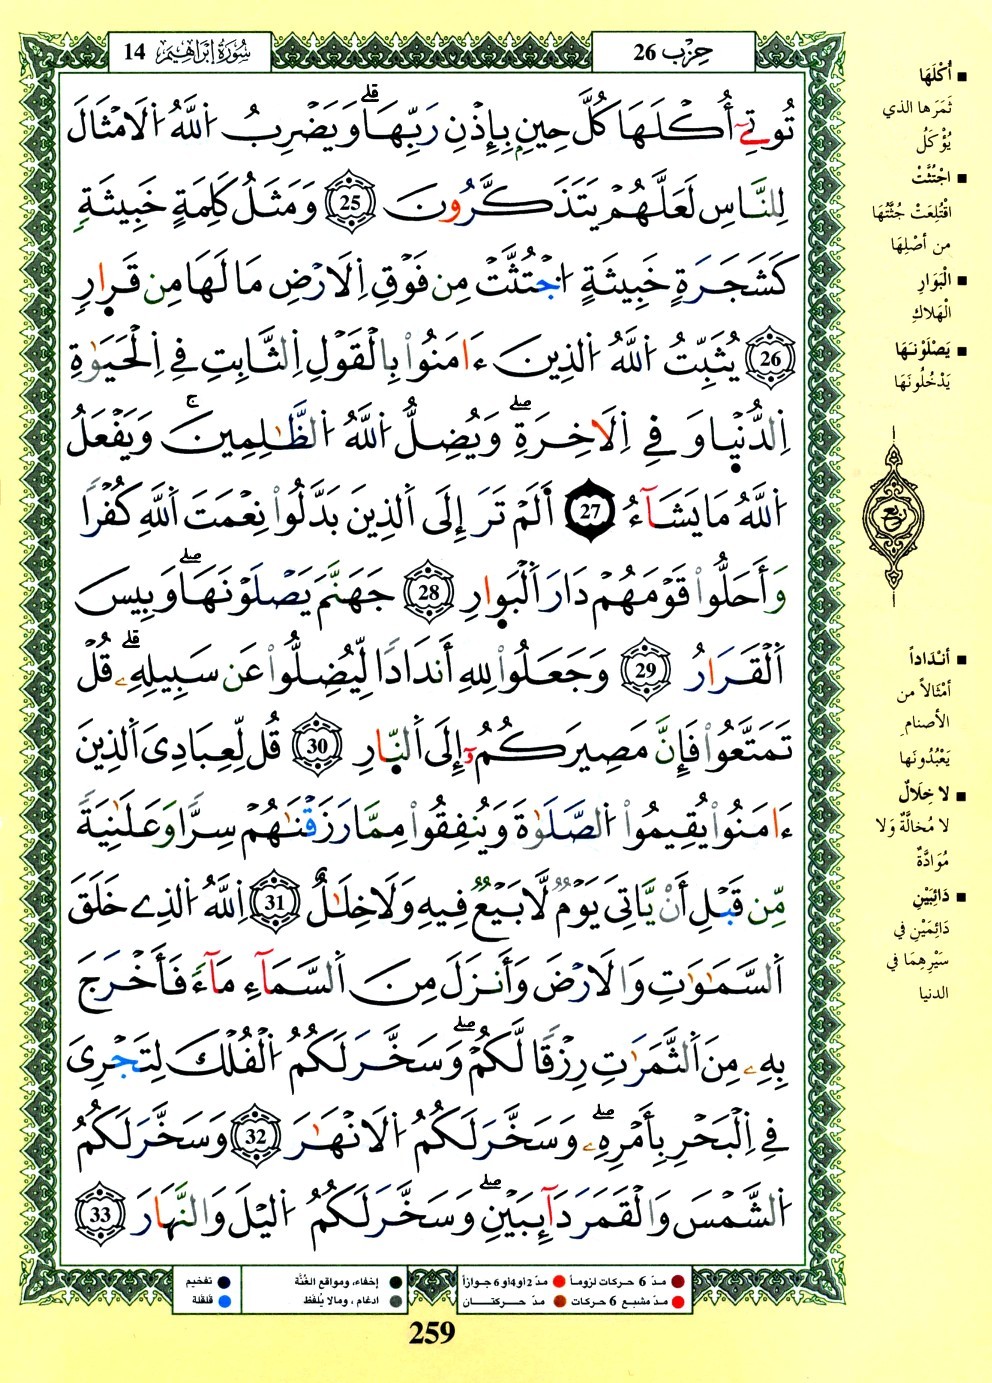 سُورَةُ إِبْرَاهِيم 14
حِزْب 26
تُوتِي أُكْلَهَا كُلَّ حِينٍ بِإِذْنِ رَبِّهَا وَيَضْرِبُ اللَّهُ الَامْثَالَ
لِلنَّاسِ لَعَلَّهُمْ يَتَذَكَّرُونَ 25 وَمَثَلُ كَلِمَةٍ خَبِيثَةٍ
كَشَجَرَةٍ خَبِيثَةٍ اجْتُثَّتْ مِن فَوْقِ اِلَارْضِ مَا لَهَا مِن قَرَارٍ
26 يُثَبِّتُ اللَّهُ الذِينَ ءَامَنُوا بِالْقَوْلِ اِلثَّابِتِ فِي اِلْحَيَوٰةِ
اِلدُّنْيَا وَفِي اِلَاخِرَةِ وَيُضِلُّ اللَّهُ الظَّٰلِمِينَ وَيَفْعَلُ
اللَّهُ مَا يَشَآءُ 27 أَلَمْ تَرَ إِلَى الَذِينَ بَدَّلُوا نِعْمَتَ اَللَّهِ كُفْرًا
وَأَحَلُّوا قَوْمَهُمْ دَارَ اَلْبَوَارِ 28 جَهَنَّمَ يَصْلَوْنَهَا وَبِيسَ
اَلْقَرَارُ 29 وَجَعَلُوا لِلهِ أَندَادًا لِّيُضِلُّوا عَن سَبِيلِهِۦ قُلْ
تَمَتَّعُوا فَإِنَّ مَصِيرَكُمُۥٓ إِلَى اَلنَّارِ 30 قُل لِّعِبَادِيَ اَلذِينَ
ءَامَنُوا يُقِيمُوا الصَّلَوٰةَ وَيُنفِقُوا مِمَّا رَزَقْنَٰهُمْ سِرًّا وَعَلَٰنِيَةً
مِّن قَبْلِ أَنْ يَّاتِيَ يَوْمٌ لَّا بَيْعٌ فِيهِ وَلَا خِلَٰلٌ 31 اِللَّهُ الذِي خَلَقَ
اَلسَّمَٰوَٰتِ وَالَارْضَ وَأَنزَلَ مِنَ اَلسَّمَآءِ مَآءً فَأَخْرَجَ
بِهِۦ مِنَ اَلثَّمَرَٰتِ رِزْقًا لَّكُمْ وَسَخَّرَ لَكُمُ الْفُلْكَ لِتَجْرِيَ
فِي اِلْبَحْرِ بِأَمْرِهِۦ وَسَخَّرَ لَكُمُ الَانْهَٰرَ 32 وَسَخَّرَ لَكُمُ
الشَّمْسَ وَالْقَمَرَ دَآئِبَيْنِ وَسَخَّرَ لَكُمُ اليْلَ وَالنَّهَارَ 33
■ أُكْلَهَا
ثَمَرَها الذي
يُؤْكَلُ
■ اجْتُثَّتْ
اقْتُلِعَتْ جُثَّتُهَا
من أَصْلِهَا
■ الْبَوَارِ
الْهَلاكِ
■ يَصْلَوْنَهَا
يَدْخُلُونَهَا
ربع
■ أَنْدَاداً
أَمْثَالاً من
الأصنامِ
يَعْبُدُونَها
■ لا خِلَالٌ
لا مُخالَّةٌ وَلا
مُوَادَّةٌ
■ دَائِبَيْنِ
دَائِمَيْنِ في
سَيْرِهِمَا في
الدنيا
مدّ 6 حركات لزوماً مدّ 2 او 4 او 6 جوازاً
مدّ مشبع 6 حركات مدّ حركتان
إخفاء، ومواقع الغُنَّة
ادغام، ومالا يُلفظ
تفخيم
قلقلة
259